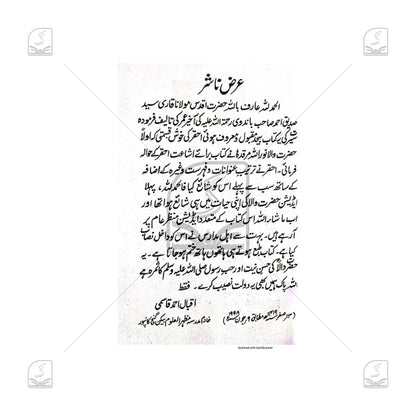 عرض ناشر
الحمد للہ عارف باللہ حضرت اقدس مولانا قاری سید
صدیق احمد صاحب باندوی رحمۃ اللہ علیہ کی آخیر عمر کی تالیف فرمودہ
کی یہ کتاب بیحد مقبول و معروف ہوئی احقر کی خوش قسمتی کہ اولاً
حضرت والا نور اللہ مرقدہ نے کتاب برائے اشاعت احقر کے حوالہ
فرمائی۔ احقر نے ترتیب عنوانات و فہرست وغیرہ کے اضافہ
کے ساتھ سب سے پہلے اس کو شائع کیا فالحمد للہ، پہلا
ایڈیشن حضرت والا کی اپنی حیات میں ہی شائع ہوا تھا اور
اب ماشاء اللہ اس کتاب کے متعدد ایڈیشن منظر عام پر
آرہے ہیں۔ بہت سے اہل مدارس نے اس کو داخل نصاب
کیا ہے۔ کتاب طبع ہوتے ہی ہاتھوں ہاتھ ختم ہو جاتا ہے۔ یہ
حضرت والا کی حسن نیت اور حب رسول صلی اللہ علیہ وسلم کا ثمرہ ہے
اللہ پاک ہمیں بھی یہ دولت نصیب کرے۔ فقط
اقبال احمد قاسمی
خادم مدرسہ مظہر العلوم بیکن گنج کانپور
صفر ۱۴۱۹ھ مطابق ۹ جون ۱۹۹۸ء
Scanned with CamScanner